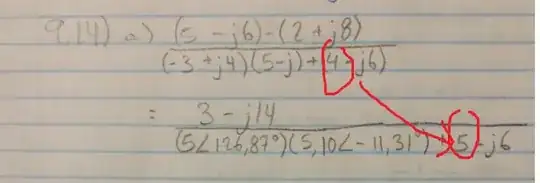 9.14) a) (5 - j6) - (2 + j8)
(-3 + j4)(5 - j) + (4 - j6)
= 3 - j14
(5∠126,87°)(5,10∠-11,31°) + 5 - j6